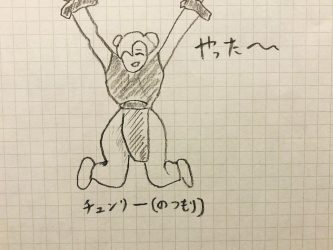 やったー〜
チュンリー(のつもり)